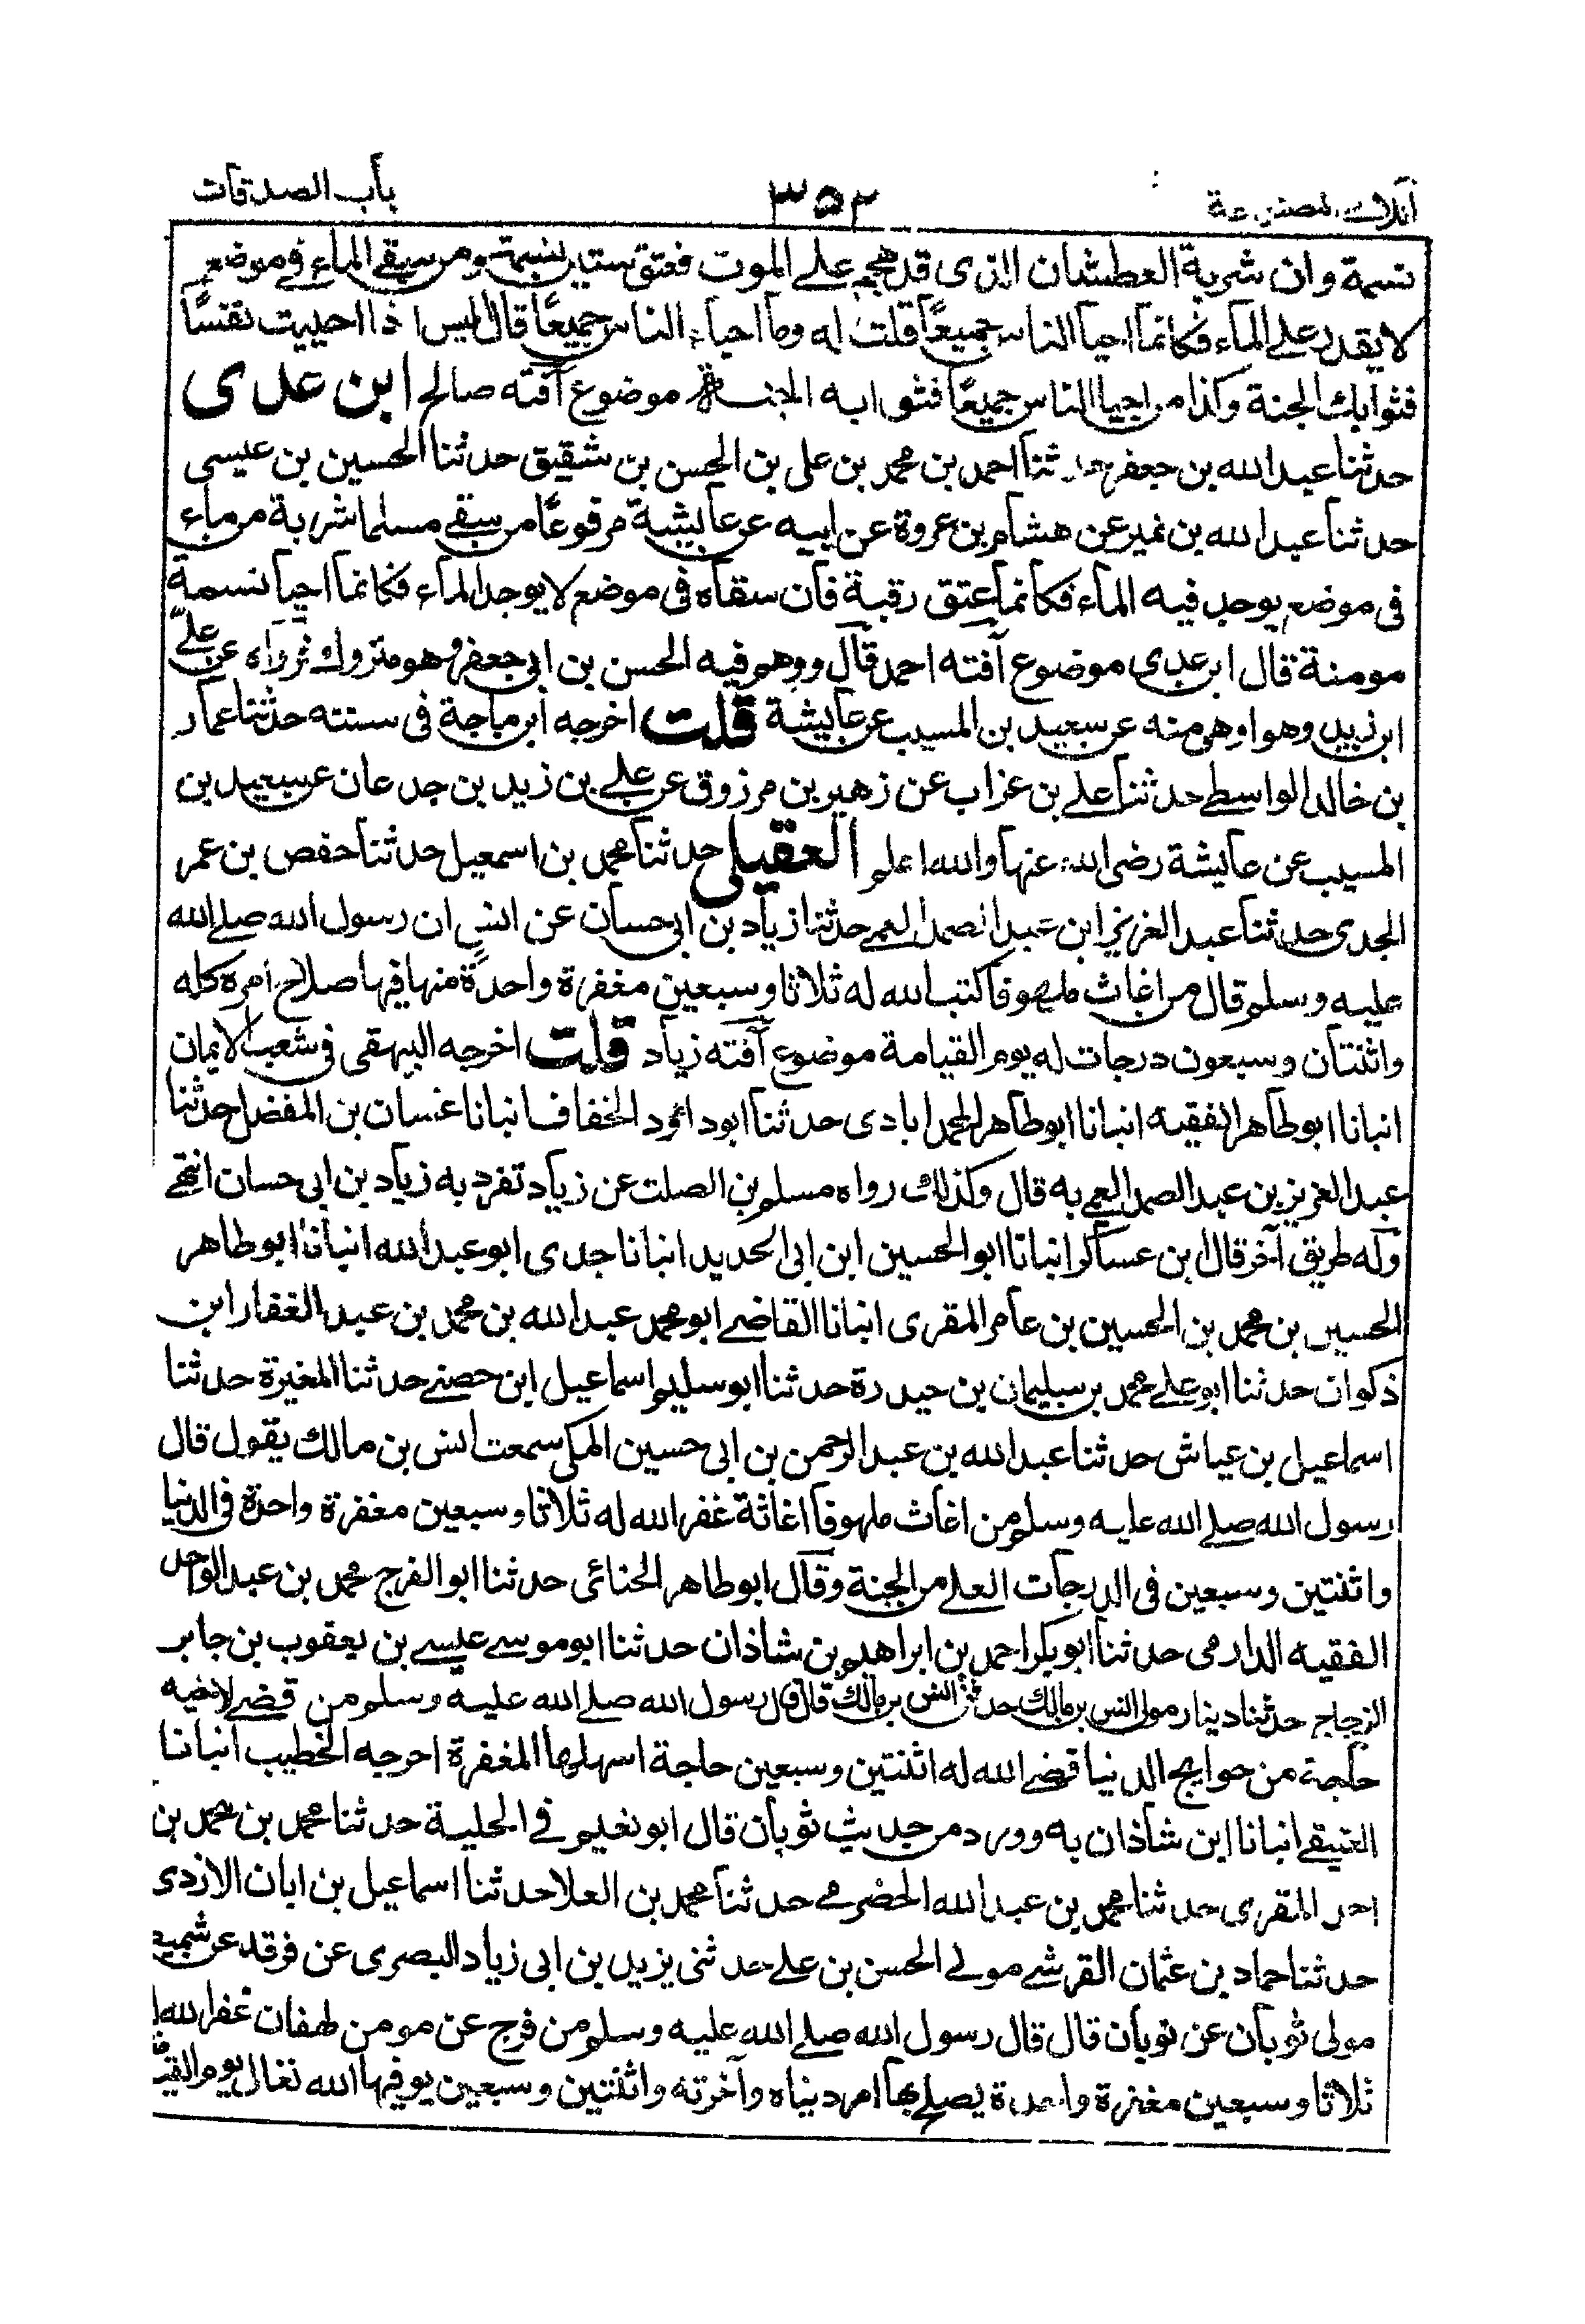 باب الصدقات
٣٥٢
نسمة وان شربة العطشان الذى قد هجم على الموت فعتق ستين نسمة ومن سقى الماء فى موضع
لا يقدر على الماء فكانما احيا الناس جميعًا قلت له وما احياء الناس جميعًا قال اليس اذا احييت نفسًا
فثوابك الجنة وكذا من احيا الناس جميعًا فثوابه الجنة موضوع آفته صالح ابن عدى
حدثنا عبد الله بن جعفر حدثنا احمد بن محمد بن على بن الحسن بن شقيق حدثنا الحسين بن عيسى
حدثنا عبد الله بن نمير عن هشام بن عروة عن ابيه عن عايشة مرفوعًا من سقے مسلما شربة من ماء
فى موضع يوجد فيه الماء فكانما عتق رقبة فان سقاه فى موضع لا يوجد الماء فكانما احيا نسمة
مومنة قال ابن عدى موضوع آفته احمد قال ووهم فيه الحسن بن ابى جعفر وهو متروك فرواه عن علے
ابن زيد وهو اوهى منه عن سعيد بن المسيب عن عايشة قلت اخرجه ابن ماجة فى سننه حدثنا عمار
بن خالد الواسطے حدثنا علے بن غراب عن زهير بن مرزوق عن علے بن زيد بن جدعان عن سعيد بن
المسيب عن عايشة رضى الله عنها والله اعلم العقيلى حدثنا محمد بن اسمعيل حدثنا حفص بن عمر
الجدى حدثنا عبد العزيز ابن عبد الصمد العمے حدثنا زياد بن ابى حسان عن انس ان رسول الله صلے الله
عليه وسلم قال من اغاث ملهوفا كتب الله له ثلاثا وسبعين مغفرة واحدة منها فيها صلاح امره كله
واثنتان وسبعون درجات له يوم القيامة موضوع آفته زياد قلت اخرجه البيهقى فى شعب الايمان
انبانا ابو طاهر الفقيه انبانا ابو طاهر المحمدابادى حدثنا ابو داؤد الخفاف انبانا غسان بن المفضل حدثنا
عبد العزيز بن عبد الصمد العمے به قال وكذلك رواه مسلم بن الصلت عن زياد تفرد به زياد بن ابى حسان انتهے
وله طريق آخر قال ابن عساكر انبانا ابو الحسين ابن ابى الحديد انبانا جدى ابو عبد الله انبانا ابو طاهر
الحسين بن محمد بن الحسين بن عامر المقرى انبانا القاضے ابو محمد عبد الله بن محمد بن عبد الغفار ابن
ذكوان حدثنا ابو علے محمد بن سليمان بن حيدرة حدثنا ابو سليم اسماعيل ابن حصنے حدثنا المغيرة حدثنا
اسماعيل بن عياش حدثنا عبد الله بن عبد الرحمن بن ابى حسين المكى سمعت انس بن مالك يقول قال
رسول الله صلے الله عليه وسلم من اغاث ملهوفا اغاثة غفر الله له ثلاثا وسبعين مغفرة واحدة فى الدنيا
واثنتين وسبعين فى الدرجات العلے من الجنة وقال ابو طاهر الحنائى حدثنا ابو الفرج محمد بن عبد الواحد
الفقيه الدارمى حدثنا ابو بكر احمد بن ابراهيم بن شاذان حدثنا ابو موسے عيسے بن يعقوب بن جابر
الزجاج حدثنا دينار مولى انس بن مالك حدثنى انس بن مالك قال قال رسول الله صلے الله عليه وسلم من قضے لاخيه
حاجة من حوايج الدنيا قضے الله له اثنتين وسبعين حاجة اسهلها المغفرة اخرجه الخطيب انبانا
العتيقے انبانا ابن شاذان به وورد من حديث ثوبان قال ابو نعيم فے الحلية حدثنا محمد بن محمد بن
احمد المقرى حدثنا محمد بن عبد الله الحضرمے حدثنا محمد بن العلا حدثنا اسماعيل بن ابان الازدى
حدثنا حماد بن عثمان القرشے مولے الحسن بن علے حدثنى يزيد بن ابى زياد البصرى عن فرقد عن شميط
مولى ثوبان عن ثوبان قال قال رسول الله صلے الله عليه وسلم من فرج عن مومن لهفان غفر الله
ثلاثا وسبعين مغفرة واحدة يصلے بها امر دنياه وآخرته واثنتين وسبعين يوفيها الله تعالى يوم القيمة